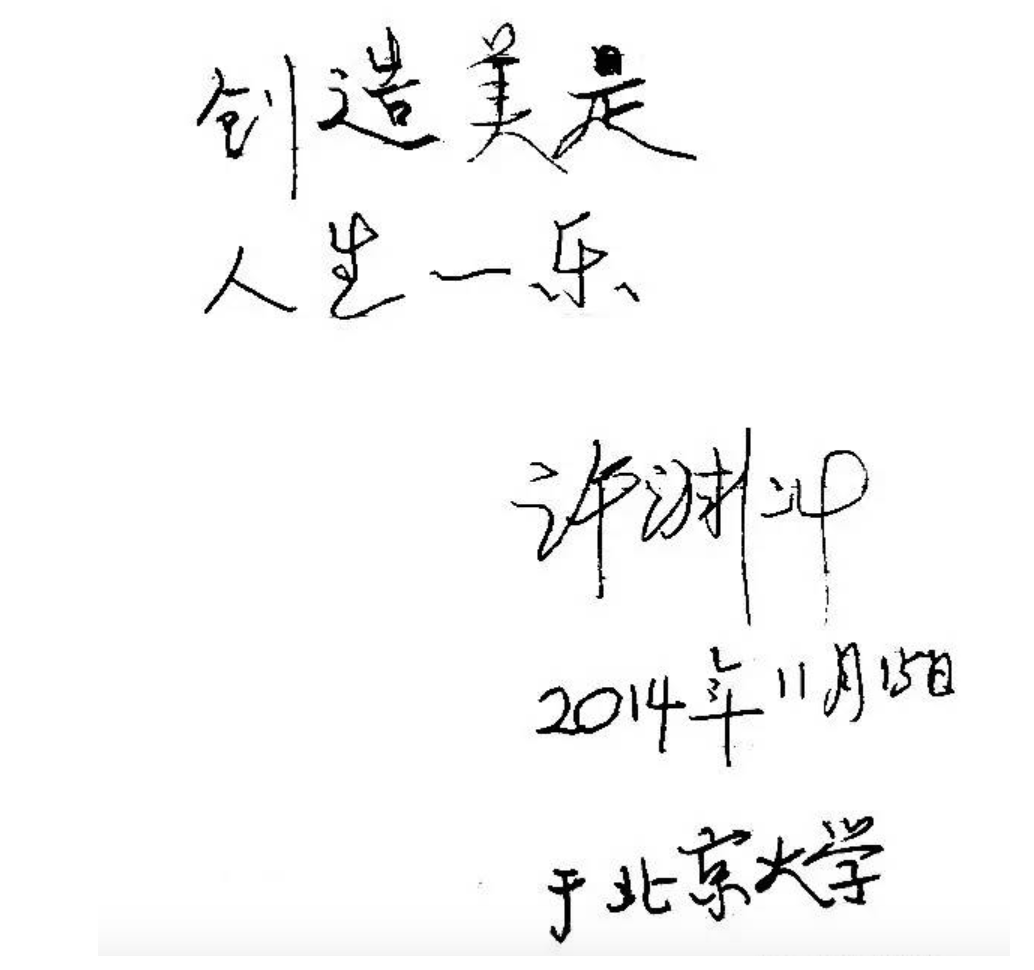 创造美是
人生一乐
许渊冲
2014年11月15日
于北京大学